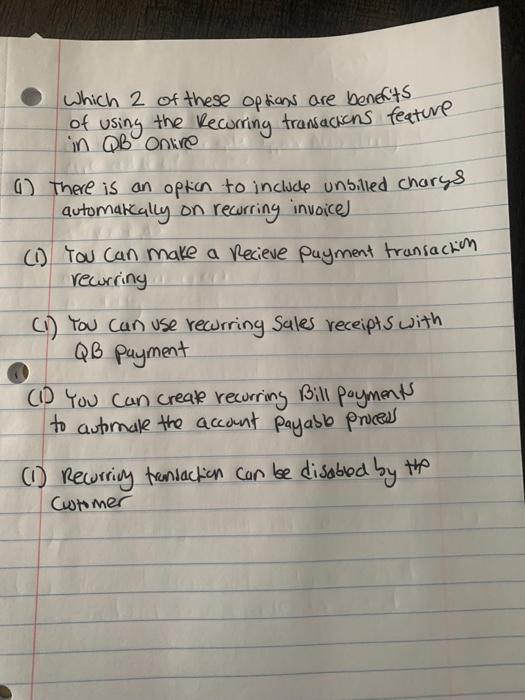 Which 2 of these options are benefits
of using the Recurring transactions feature
in QB Online
(1) There is an option to include unbilled chargs
automatically on recurring invoices
(1) You can make a Recieve payment transaction
recurring
(1) You can use recurring Sales receipts with
QB payment
(1) You can create recurring Bill payments
to automate the account payable process
(1) Recurring transaction can be disabled by the
Customer